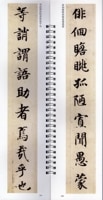 徘徊瞻眺孤陋寡聞愚蒙
等誚謂語助者焉哉乎也